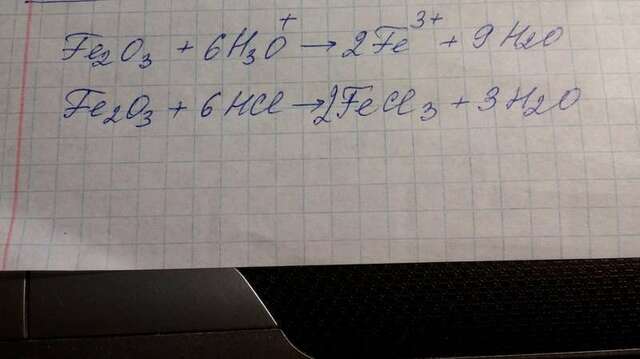 Fe₂O₃ + 6H₃O⁺ → 2Fe³⁺ + 9H₂O
Fe₂O₃ + 6HCl → 2FeCl₃ + 3H₂O